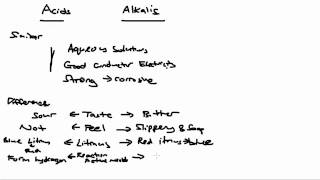 Acids Alkalis
Similar
Aqueous Solutions
Good Conductor Electricity
Strong → corrosive
Difference
Sour ← Taste → Bitter
Not ← Feel → Slippery & Soap
Blue litmus ← Litmus → Red itmus → blue
Red
Form hydrogen ← Reaction →
Active metals